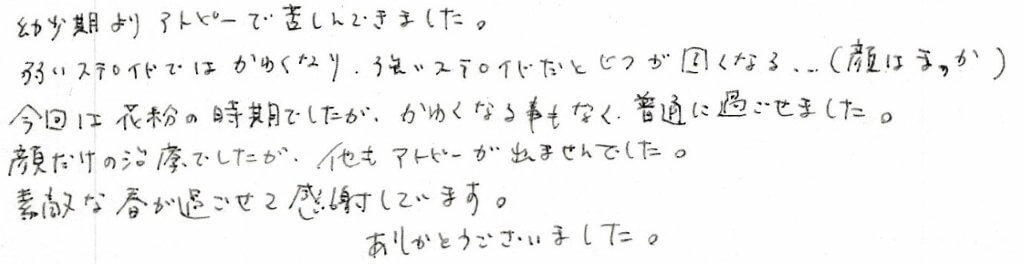 幼少期より アトピーで苦しんできました。
弱いステロイドでは かゆくなり、強いステロイドだと ヒフが固くなる...(顔はまっか)
今回は 花粉の時期でしたが、かゆくなる事もなく、普通に過ごせました。
顔だけの治療でしたが、他もアトピーが出ませんでした。
素敵な春が過ごせて感謝しています。
ありがとうございました。